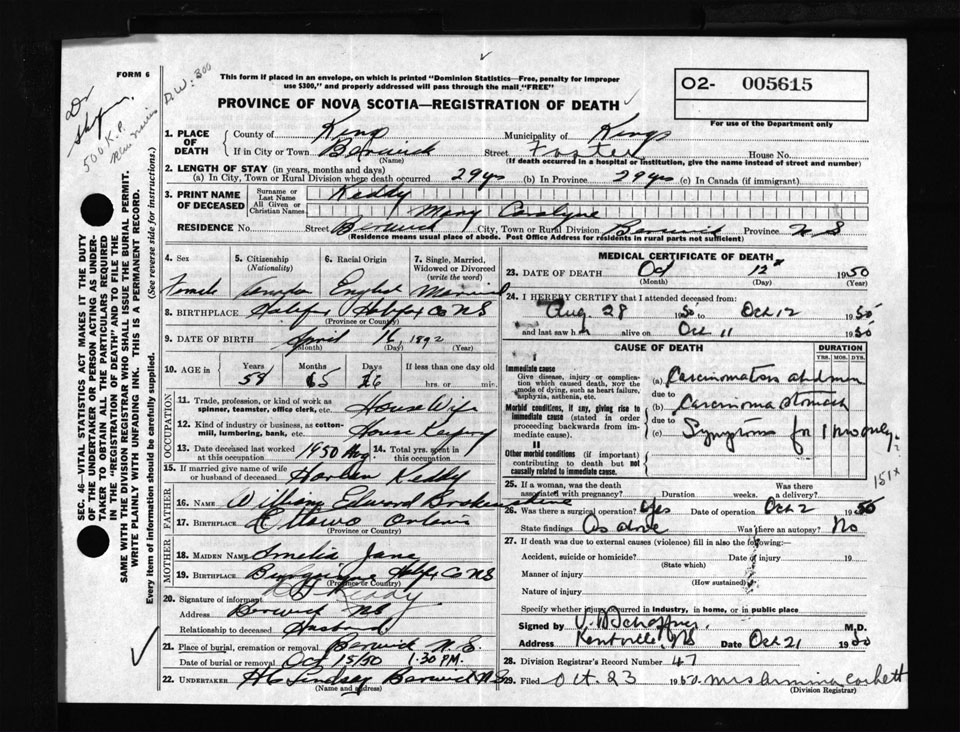 FORM 6
This form if placed in an envelope, on which is printed "Dominion Statistics—Free, penalty for improper
use $300," and properly addressed will pass through the mail "FREE"
PROVINCE OF NOVA SCOTIA—REGISTRATION OF DEATH
O2- 005615
For use of the Department only
Dr
500 K.P.
D.W. 300
SEC. 46—VITAL STATISTICS ACT MAKES IT THE DUTY
OF THE UNDERTAKER OR PERSON ACTING AS UNDER-
TAKER TO OBTAIN ALL THE PARTICULARS REQUIRED
IN THE "REGISTRATION OF DEATH" AND TO FILE THE
SAME WITH THE DIVISION REGISTRAR WHO SHALL ISSUE THE BURIAL PERMIT.
WRITE PLAINLY WITH UNFADING INK. THIS IS A PERMANENT RECORD.
Every item of information should be carefully supplied. (See reverse side for instructions.)
1. PLACE OF DEATH
County of Kings Municipality of Kings
If in City or Town Berwick Street Foster House No.
(Name) (If death occurred in a hospital or institution, give the name instead of street and number)
2. LENGTH OF STAY (in years, months and days)
(a) In City, Town or Rural Division where death occurred 29 yrs (b) In Province 29 yrs (c) In Canada (if immigrant)
3. PRINT NAME OF DECEASED
Surname or Last Name Reddy
All Given or Christian Names Mary Carolyne
RESIDENCE No. Street Berwick City, Town or Rural Division Berwick Province N S
(Residence means usual place of abode. Post Office Address for residents in rural parts not sufficient)
4. Sex 5. Citizenship (Nationality) 6. Racial Origin 7. Single, Married, Widowed or Divorced (write the word)
Female English Married
8. BIRTHPLACE Halifax Halifax Co NS
(Province or Country)
9. DATE OF BIRTH April 16 1892
(Month) (Day) (Year)
10. AGE in Years Months Days If less than one day old
58 5 26 hrs. or min.
OCCUPATION
11. Trade, profession, or kind of work as spinner, teamster, office clerk, etc. House Wife
12. Kind of industry or business, as cotton-mill, lumbering, bank, etc. House Keeping
13. Date deceased last worked at this occupation 1950 Aug. 14. Total yrs. spent in this occupation
15. If married give name of wife or husband of deceased Reddy
FATHER
16. NAME William Edward
17. BIRTHPLACE Ottawa Ontario
(Province or Country)
MOTHER
18. MAIDEN NAME Amelia Jane
19. BIRTHPLACE Halifax Co NS
(Province or Country)
20. Signature of informant Reddy
Address Berwick NS
Relationship to deceased Husband
21. Place of burial, cremation or removal Berwick N.S.
Date of burial or removal Oct 15/50 1.30 P.M.
22. UNDERTAKER H C Lindsay Berwick N S
(Name and address)
MEDICAL CERTIFICATE OF DEATH
23. DATE OF DEATH Oct 12th 1950
(Month) (Day) (Year)
24. I HEREBY CERTIFY that I attended deceased from:
Aug. 28 1950 to Oct 12 1950
and last saw h alive on Oct 11 1950
CAUSE OF DEATH DURATION
YRS. MOS. DYS.
I
Immediate cause
Give disease, injury or complication which caused death, NOT the mode of dying, such as heart failure, asphyxia, asthenia, etc.
(a) Carcinomatosis abdomen
due to
Morbid conditions, if any, giving rise to immediate cause (stated in order proceeding backwards from immediate cause).
(b) Carcinoma stomach
due to
(c) Symptoms for 1 mo only.
II
Other morbid conditions (if important) contributing to death but not causally related to immediate cause.
151x
25. If a woman, was the death associated with pregnancy? Duration weeks. Was there a delivery?
26. Was there a surgical operation? Yes Date of operation Oct 2 1950
State findings As above Was there an autopsy? No
27. If death was due to external causes (violence) fill in also the following:—
Accident, suicide or homicide? Date of injury 19
(State which)
Manner of injury
(How sustained)
Nature of injury
Specify whether injury occurred in industry, in home, or in public place
Signed by M.D.
Address Kentville, NS Date Oct 21 1950
28. Division Registrar's Record Number 47
29. Filed Oct. 23 1950. Mrs Armina Corbett
(Division Registrar)